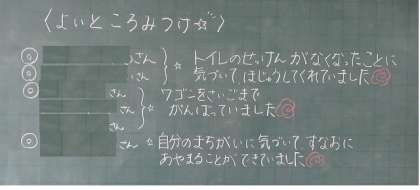 〈よいところみつけ☆〉
◎ さん ☆ トイレのせっけんがなくなったことに
◎ さん 気づいてほじゅうしてくれていました
◎ さん ☆ ワゴンをさいごまで
さん がんばっていました
さん
◎ さん ☆ 自分のまちがいに気づいて、すなおに
あやまることができていました